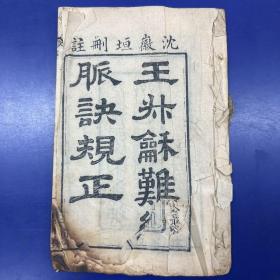 沈微垣刪註
王叔龢難經
脈訣規正